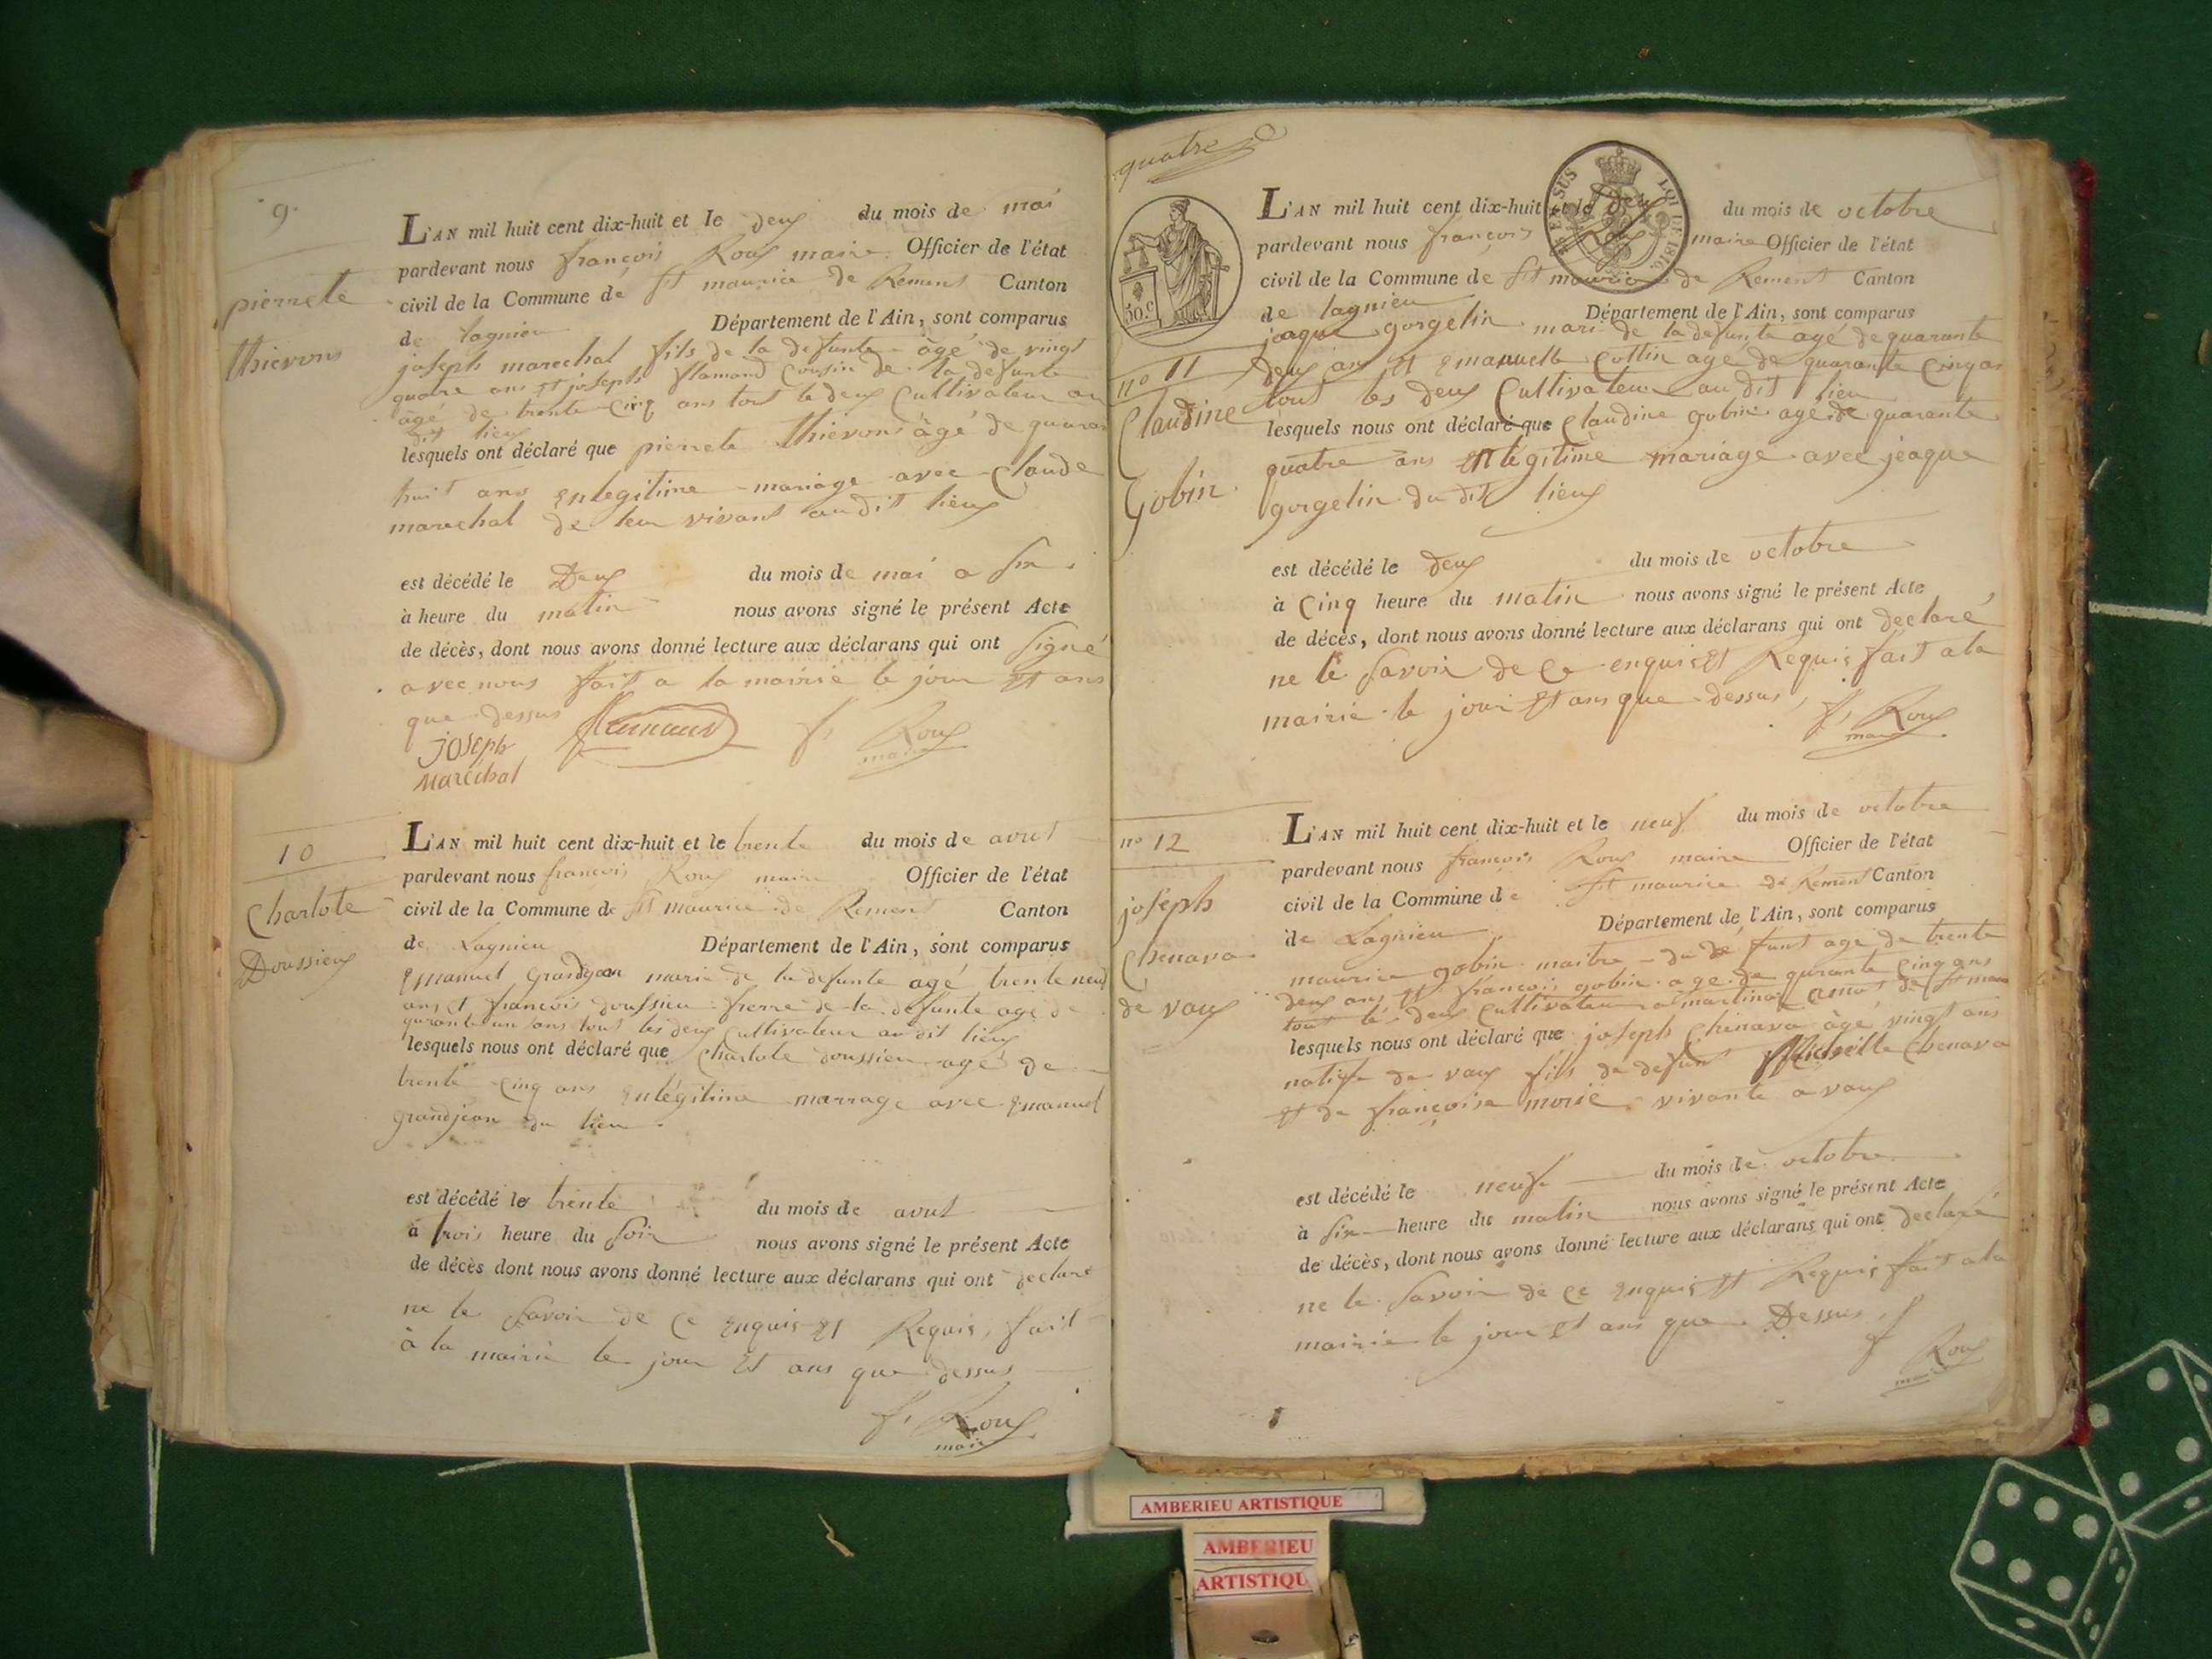 9.
pierrete
thievons
L'AN mil huit cent dix-huit et le deux du mois de mai
pardevant nous françois Roux maire Officier de l'état
civil de la Commune de St maurice de Remens Canton
de lagnieu Département de l'Ain, sont comparus
joseph marechal fils de la defunte âgé de vingt
quatre ans et joseph flamand Cousin de la defunte
âgé de trente Cinq ans tout le deux Cultivateur au
dit lieu
lesquels ont déclaré que pierrete thievons âgé de quarante
huit ans en legitime mariage avec Claude
marechal de leur vivant au dit lieux
est décédé le Deux du mois de mai a six
à heure du matin nous avons signé le présent Acte
de décès, dont nous avons donné lecture aux déclarans qui ont signé
avec nous fait a la mairie le jour et ans
que dessus
joseph flamand f. Roux
Maréchal maire
10
Charlote
Doussieux
L'AN mil huit cent dix-huit et le trente du mois de avut
pardevant nous francois Roux maire Officier de l'état
civil de la Commune de St maurice de Remens Canton
de Lagnieu Département de l'Ain, sont comparus
Emanuel grandjean marie de la defunte agé trente neuf
ans et francois doussieu frerre de la defunte age de
quarante un ans tout les deux Cultivateur au dit lieux
lesquels nous ont déclaré que Charlote doussieu agé de
trente Cinq ans en légitime marrage avec Emanuel
grandjean du lieu.
est décédé le trente du mois de avut
à trois heure du soir nous avons signé le présent Acte
de décès dont nous avons donné lecture aux déclarans qui ont declaré
ne le savoir de ce enquis et Requis, fait
à la mairie le jour et ans que dessus
f. Roux
maire
quatre
50. C
LOI DE 1816.
L'AN mil huit cent dix-huit et le deux du mois de octobre
pardevant nous françois Roux maire Officier de l'état
civil de la Commune de St maurice de Remens Canton
de lagnieu Département de l'Ain, sont comparus
no 11
Claudine
Gobin
jeaque gorgelin mari de la defunte agé de quarante
deux ans et Emanuelle Cottin age de quarante Cinq ans
tout les deux Cultivateur au dit lieu
lesquels nous ont déclaré que Claudine gobin age de quarante
quatre ans en légitime mariage avec jeaque
gorgelin du dit lieux
est décédé le deux du mois de octobre
à Cinq heure du matin nous avons signé le présent Acte
de décès, dont nous avons donné lecture aux déclarans qui ont declaré
ne le savoir de ce enquis et Requis fait a la
mairie le jour et ans que dessus, f. Roux
maire
no 12
joseph
Chenava
de vaux
L'AN mil huit cent dix-huit et le neuf du mois de octobre
pardevant nous francois Roux maire Officier de l'état
civil de la Commune de St maurice de Remens Canton
de Lagnieu Département de l'Ain, sont comparus
maurice gobin maitre du de funt age de trente
deux ans et francois gobin age de qurante Cinq ans
tout le deux Cultivateur a martinas de St
lesquels nous ont déclaré que joseph Chenava âgé vingt ans
natife de vaux fils de defunt Chenava
et de françoise morié vivante a vaux
est décédé le neuf du mois de octobre
à six heure du matin nous avons signé le présent Acte
de décès, dont nous avons donné lecture aux déclarans qui ont declaré
ne le savoir de ce enquis et Requis fait a la
mairie le jour et ans que Dessus, f Roux
maire
AMBERIEU ARTISTIQUE
AMBERIEU
ARTISTIQU